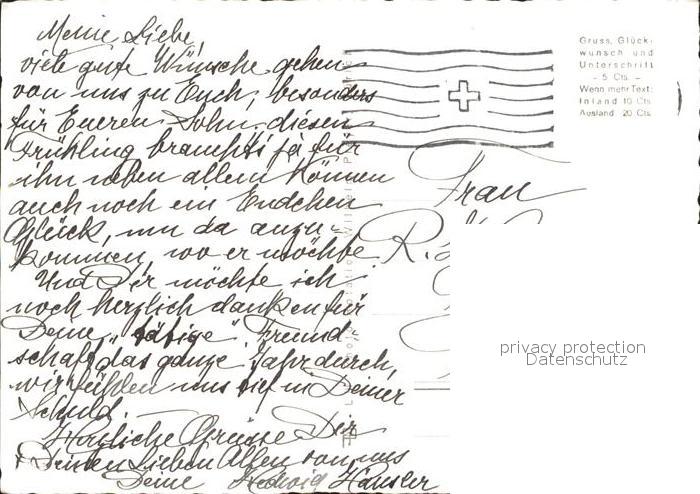 Meine Liebe,
viele gute Wünsche gehen
von uns zu Euch, besonders
für Eueren Sohn, diesen
Frühling braucht's ja für
ihn neben allem Können
auch noch ein Endchen
Glück, um da anzu-
kommen, wo er möchte.
Und Dir möchte ich
noch herzlich danken für
Deine "tätige" Freund-
schaft das ganze Jahr durch,
wir fühlen uns tief in Deiner
Schuld.
Herzliche Grüsse Dir
Deinen Lieben Allen von uns
Deine Hedwig
Gruss, Glück-
wunsch und
Unterschrift
- 5 Cts. -
Wenn mehr Text:
Inland 10 Cts.
Ausland 20 Cts.
Frau
R.
privacy protection
Datenschutz